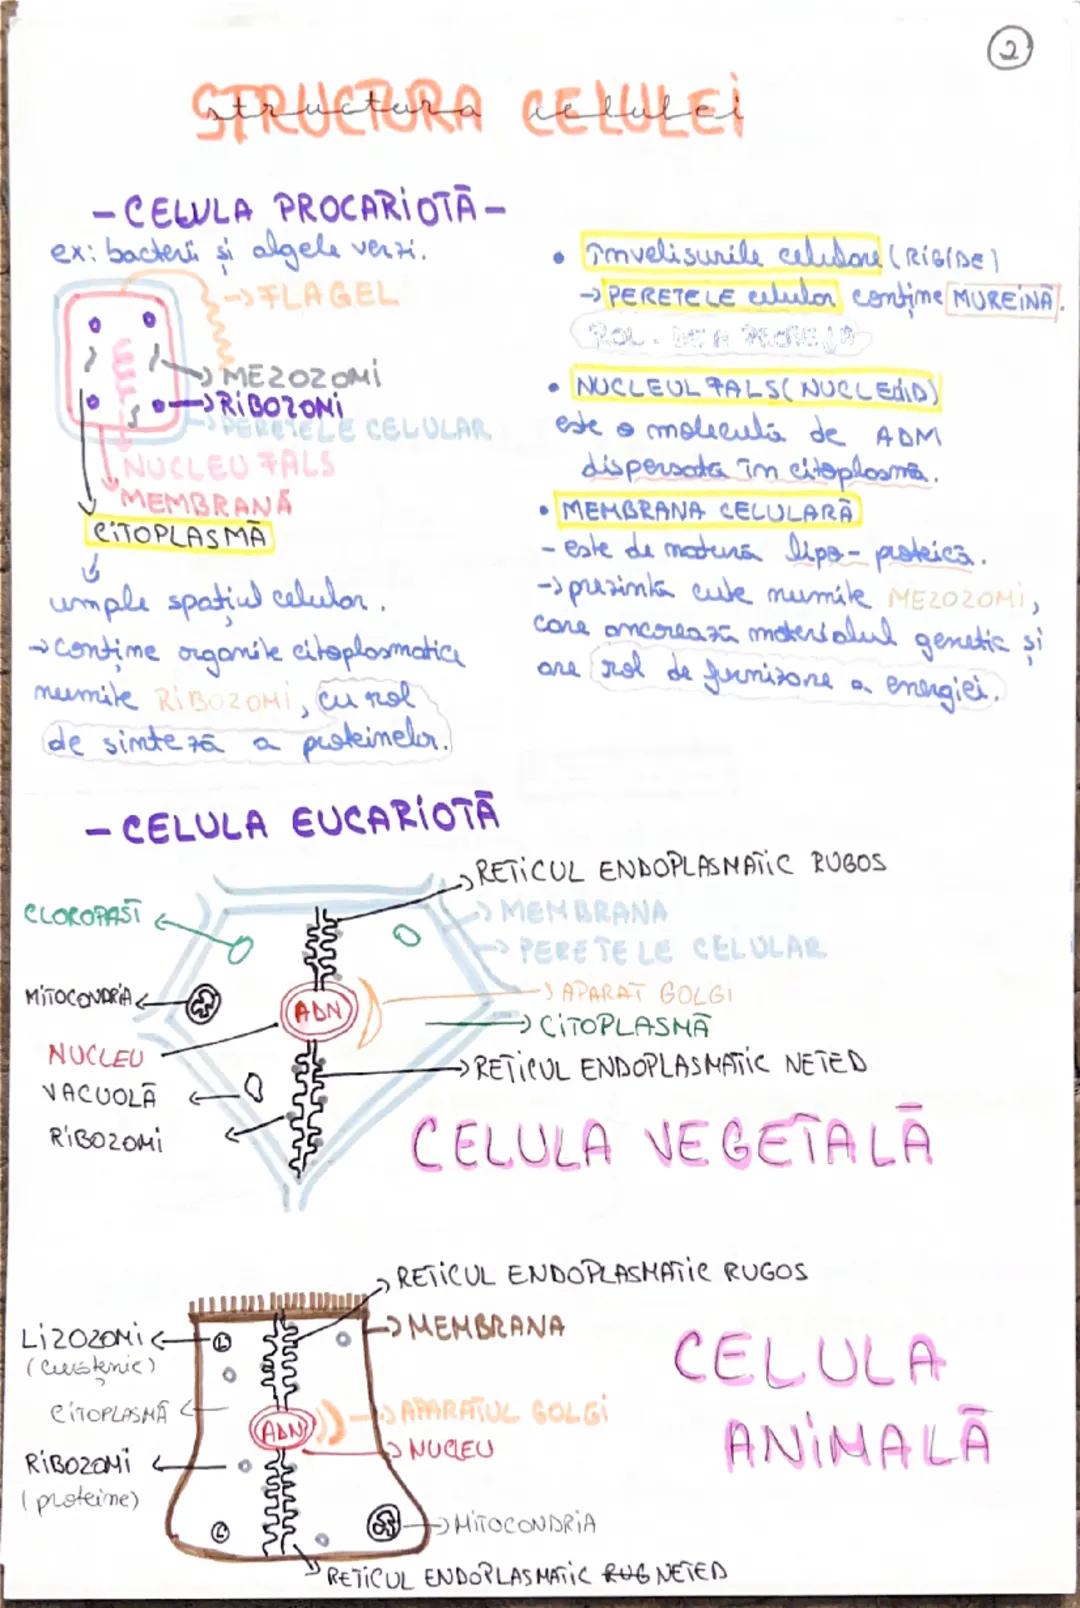 2
STRUCTURA CELULEI
structura celulei
- CELULA PROCARIOTĂ -
ex: bacterii și algele verzi.
→ FLAGEL
→ MEZOZOMI
→ RIBOZOMI
→ PERETELE CELULAR
NUCLEU FALS
MEMBRANĂ
CITOPLASMĂ
umple spațiul celular.
→ conține organite citoplasmatice
numite RIBOZOMI, cu rol
de sinteză a proteinelor.
• Învelisurile celulare (RIGIDE)
→ PERETELE celular conține MUREINĂ.
ROL. DE A PROTEJA
• NUCLEUL FALS (NUCLEOID)
este o moleculă de ADN
dispersată în citoplasmă.
• MEMBRANA CELULARĂ
- este de natură lipo-proteică.
→ prezintă cute numite MEZOZOMI,
care ancorează materialul genetic și
are rol de furnizare a energiei.
- CELULA EUCARIOTĂ
→ RETICUL ENDOPLASMATIC RUGOS
CLOROPAST
→ MEMBRANA
→ PERETELE CELULAR
MITOCONDRIA
→ APARAT GOLGI
ADN
→ CITOPLASMĂ
NUCLEU
→ RETICUL ENDOPLASMATIC NETED
VACUOLĂ
RIBOZOMI
CELULA VEGETALĂ
→ RETICUL ENDOPLASMATIC RUGOS
LIZOZOMI
L
→ MEMBRANA
CITOPLASMĂ
→ APARATUL GOLGI
ADN
→ NUCLEU
RIBOZOMI
(proteine)
L
→ MITOCONDRIA
→ RETICUL ENDOPLASMATIC RUG NETED
CELULA
ANIMALĂ